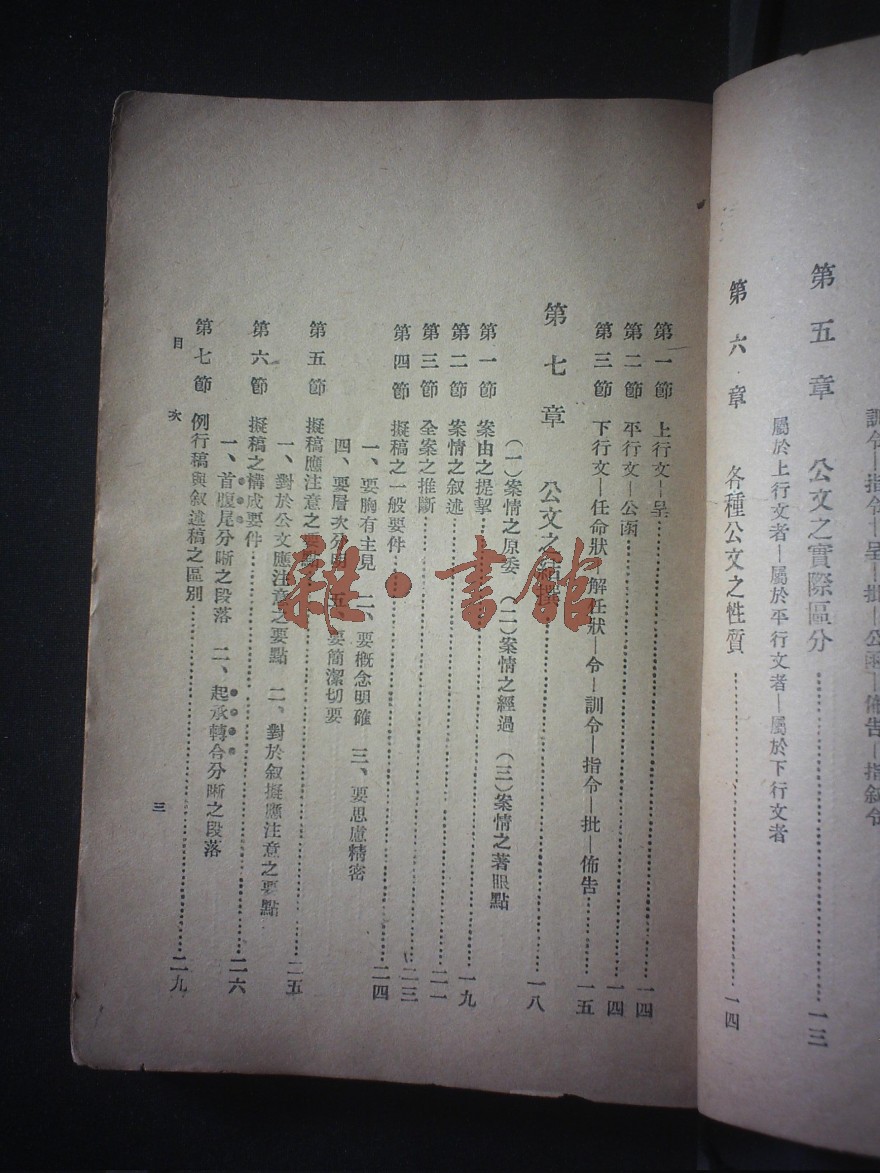 訓令—指令—呈—批—公函—佈告—指
第五章 公文之實際區分……一三
屬於上行文者—屬於平行文者—屬於下行文者
第六章 各種公文之性質……一四
第一節 上行文—呈……一四
第二節 平行文—公函……一四
第三節 下行文—任命狀—解任狀—令—訓令—指令—批—佈告……一五
第七章 公文之撰……一八
第一節 案由之提挈……一九
(一)案情之原委 (二)案情之經過 (三)案情之著眼點
第二節 案情之叙述……二一
第三節 全案之推斷……二三
第四節 擬稿之一般要件……二四
一、要胸有主見 二、要概念明確 三、要思慮精密
四、要層次分明 五、要簡潔切要
第五節 擬稿應注意之要點……二五
一、對於公文應注意之要點 二、對於叙擬應注意之要點
第六節 擬稿之構成要件……二六
一、首腹尾分晰之段落 二、起承轉合分晰之段落
第七節 例行稿與叙述稿之區別……二九
目次
三
雜·書館